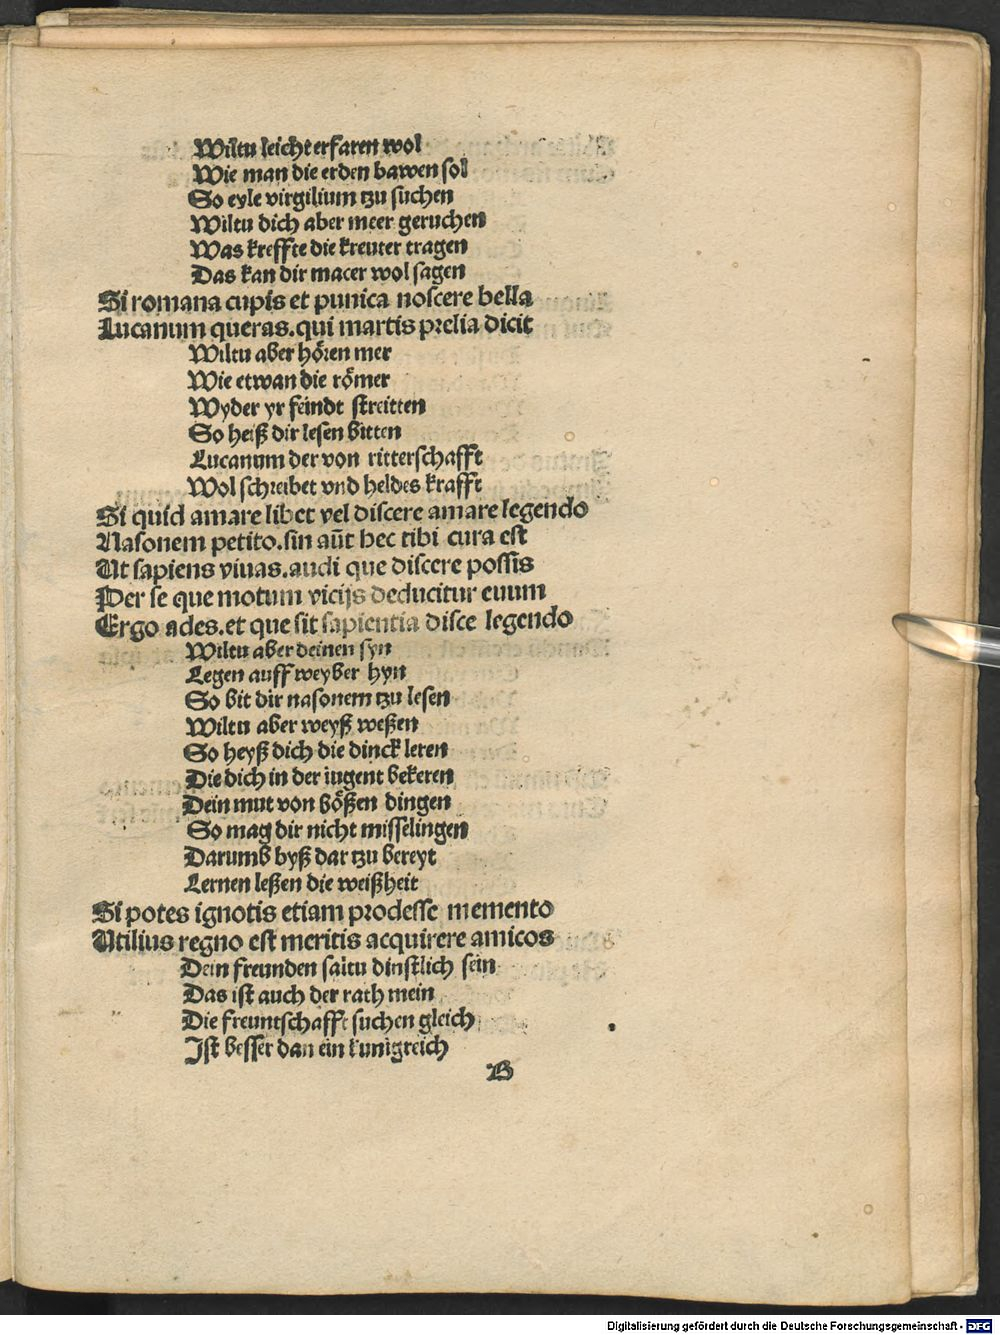 Wiltu leicht erfaren wol
Wie man die erden bawen sol
So eyle virgilium tzu suchen
Wiltu dich aber meer geruchen
Was kreffte die kreuter tragen
Das kan dir macer wol sagen
Si romana cupis et punica noscere bella
Lucanum queras.qui martis prelia dicit
Wiltu aber hören mer
Wie etwan die römer
Wyder yr feindt streitten
So heiß dir lesen bitten
Lucanum der von ritterschafft
Wol schreibet vnd heldes krafft
Si quid amare libet vel discere amare legendo
Nasonem petito.sin aūt hec tibi cura est
Ut sapiens viuas.audi que discere possis
Per se que motum vicijs deducitur euum
Ergo ades.et que sit sapientia disce legendo
Wiltu aber deinen syn
Legen auff weyber hyn
So bit dir nasonem tzu lesen
Wiltu aber weyß weßen
So heyß dich die dinck leren
Die dich in der iugent bekeren
Dein mut von bößen dingen
So mag dir nicht misselingen
Darumb byß dar tzu bereyt
Lernen leßen die weißheit
Si potes ignotis etiam prodesse memento
Utilius regno est meritis acquirere amicos
Dein freunden saltu dinstlich sein
Das ist auch der rath mein
Die freuntschafft suchen gleich
Ist besser dan ein kunigreich
B
Digitalisierung gefördert durch die Deutsche Forschungsgemeinschaft - DFG